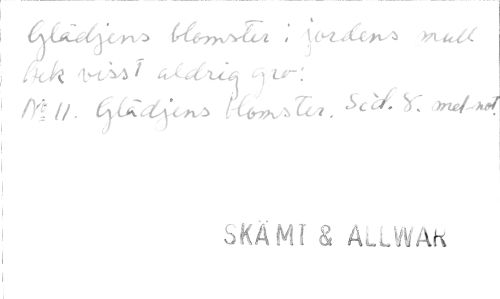 Glädjens blomster i jordens mull
ack visst aldrig gro!
No 11. Glädjens blomster. Sid. 8. med not.
SKÄMT & ALLWAR